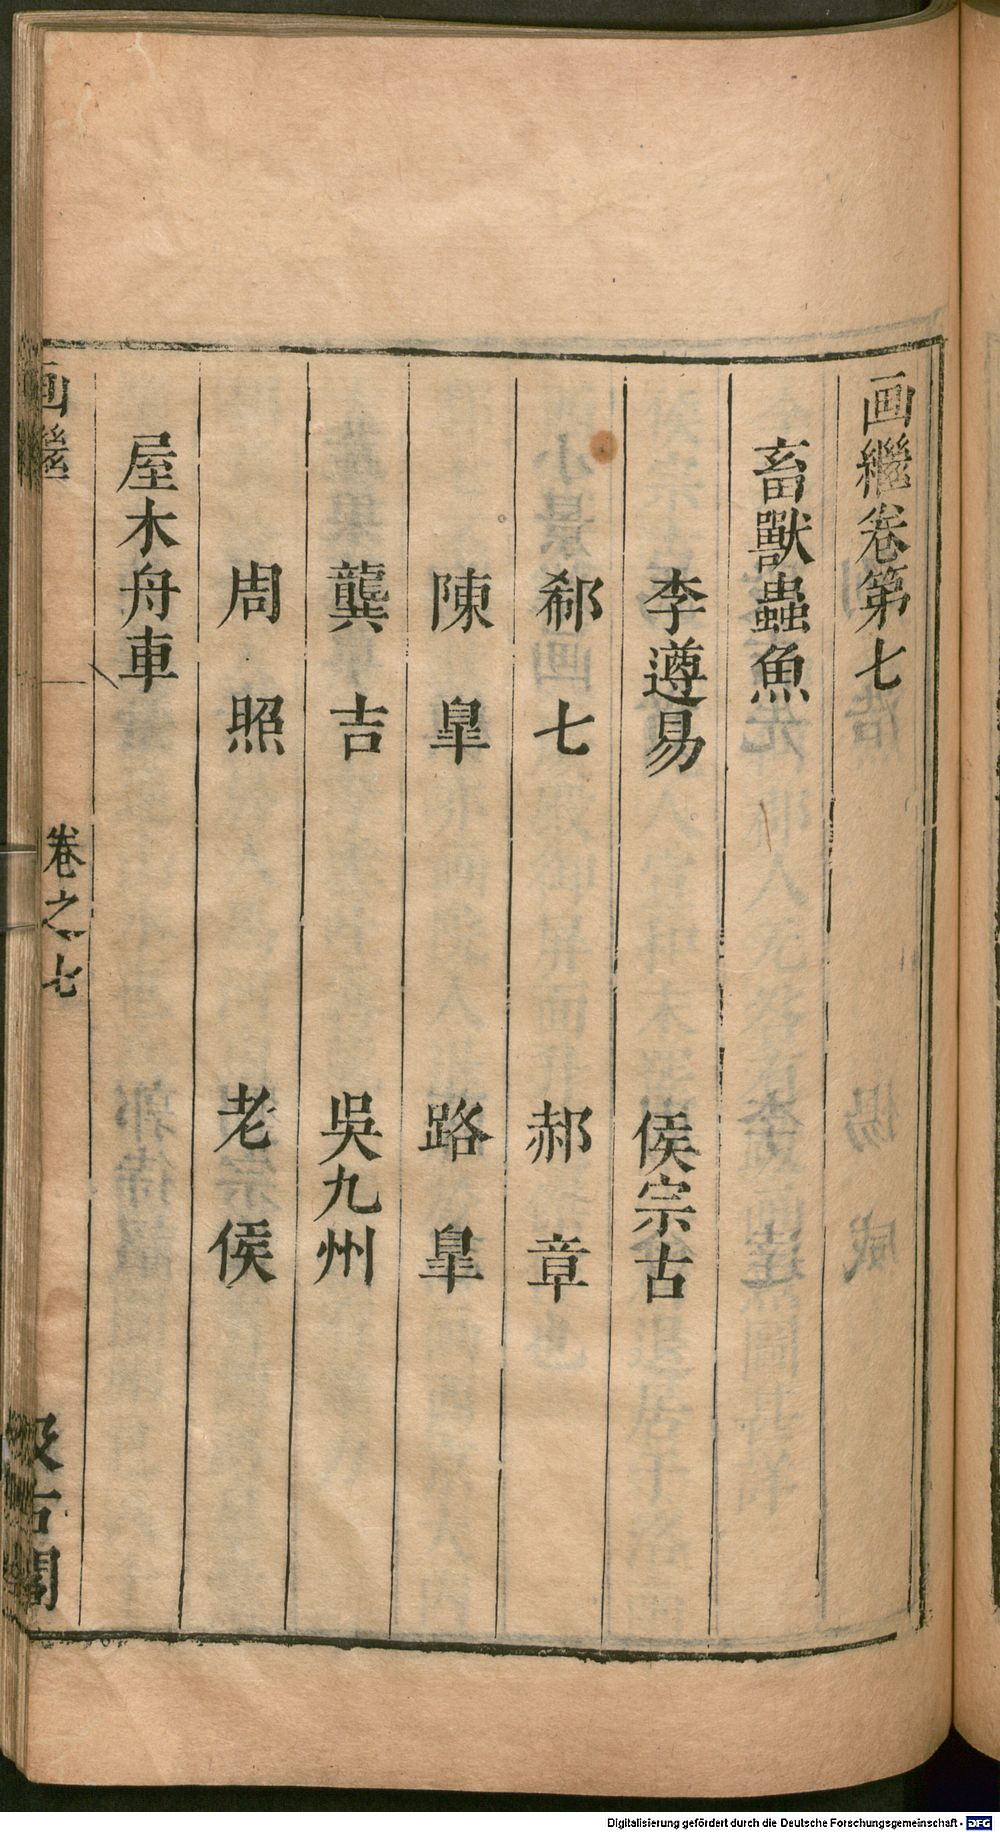 画繼卷第七
畜獸蟲魚
李遵易 侯宗古
郗七 郝章
陳皐 路皐
龔吉 吳九州
周照 老侯
屋木舟車
画繼 卷之七 汲古閣
Digitalisierung gefördert durch die Deutsche Forschungsgemeinschaft - DFG